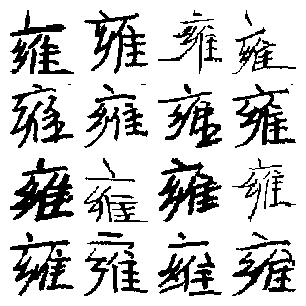 雍雍雍雍
雍雍雍雍
雍雍雍雍
雍雍雍雍